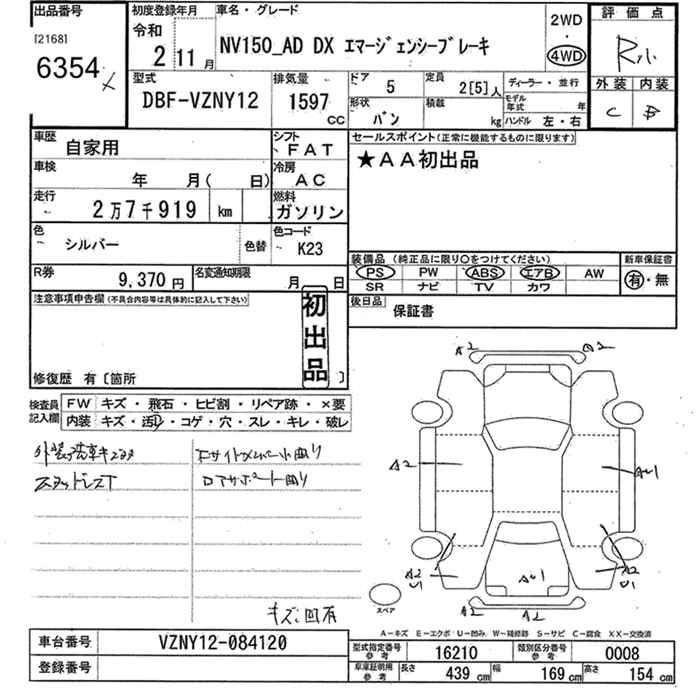 出品番号
[2168]
6354
初度登録年月
令和
2 11月
車名・グレード
NV150_AD DX エマージェンシーブレーキ
2WD
・
4WD
評価点
R小
外装 内装
C B
型式
DBF-VZNY12
排気量
1597
CC
ドア 5
定員 2[5]人
形状 バン
積載 kg
ディーラー・並行
モデル年式 年
ハンドル 左・右
車歴 自家用
シフト FAT
車検 年 月( 日)
冷房 AC
走行 2万7千919 km
燃料 ガソリン
色 シルバー 色替
色コード K23
R券 9,370円
名変通知期限 月 日
セールスポイント(正常に機能するものに限ります)
★AA初出品
装備品(純正品に限り○をつけてください)
PS PW ABS エアB AW
SR ナビ TV カワ
新車保証書
有・無
後日品 保証書
注意事項申告欄(不具合内容等は具体的に記入して下さい)
初出品
修復歴 有〔箇所 〕
検査員記入欄
FW キズ・飛石・ヒビ割・リペア跡・×要
内装 キズ・汚・コゲ・穴・スレ・キレ・破レ
A2 A2
A2 AU1
A2 U1
AU1
A2 U1
スペア
A2 A2
A-キズ E-エクボ U-凹み W-補修跡 S-サビ C-腐食 XX-交換済
車台番号 VZNY12-084120
登録番号
型式指定番号 参考 16210
類別区分番号 参考 0008
車庫証明用 参考 長さ 439 cm 幅 169 cm 高さ 154 cm